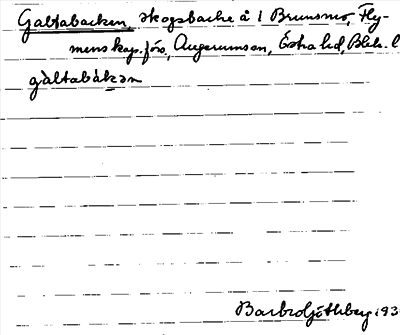 Galtabacken, skogsbacke å 1 Brunsmo, Fly-
menskap.förs, Augerumsn, Östra hd, Blek. l
gàltabàkan
Barbro Göthberg 193